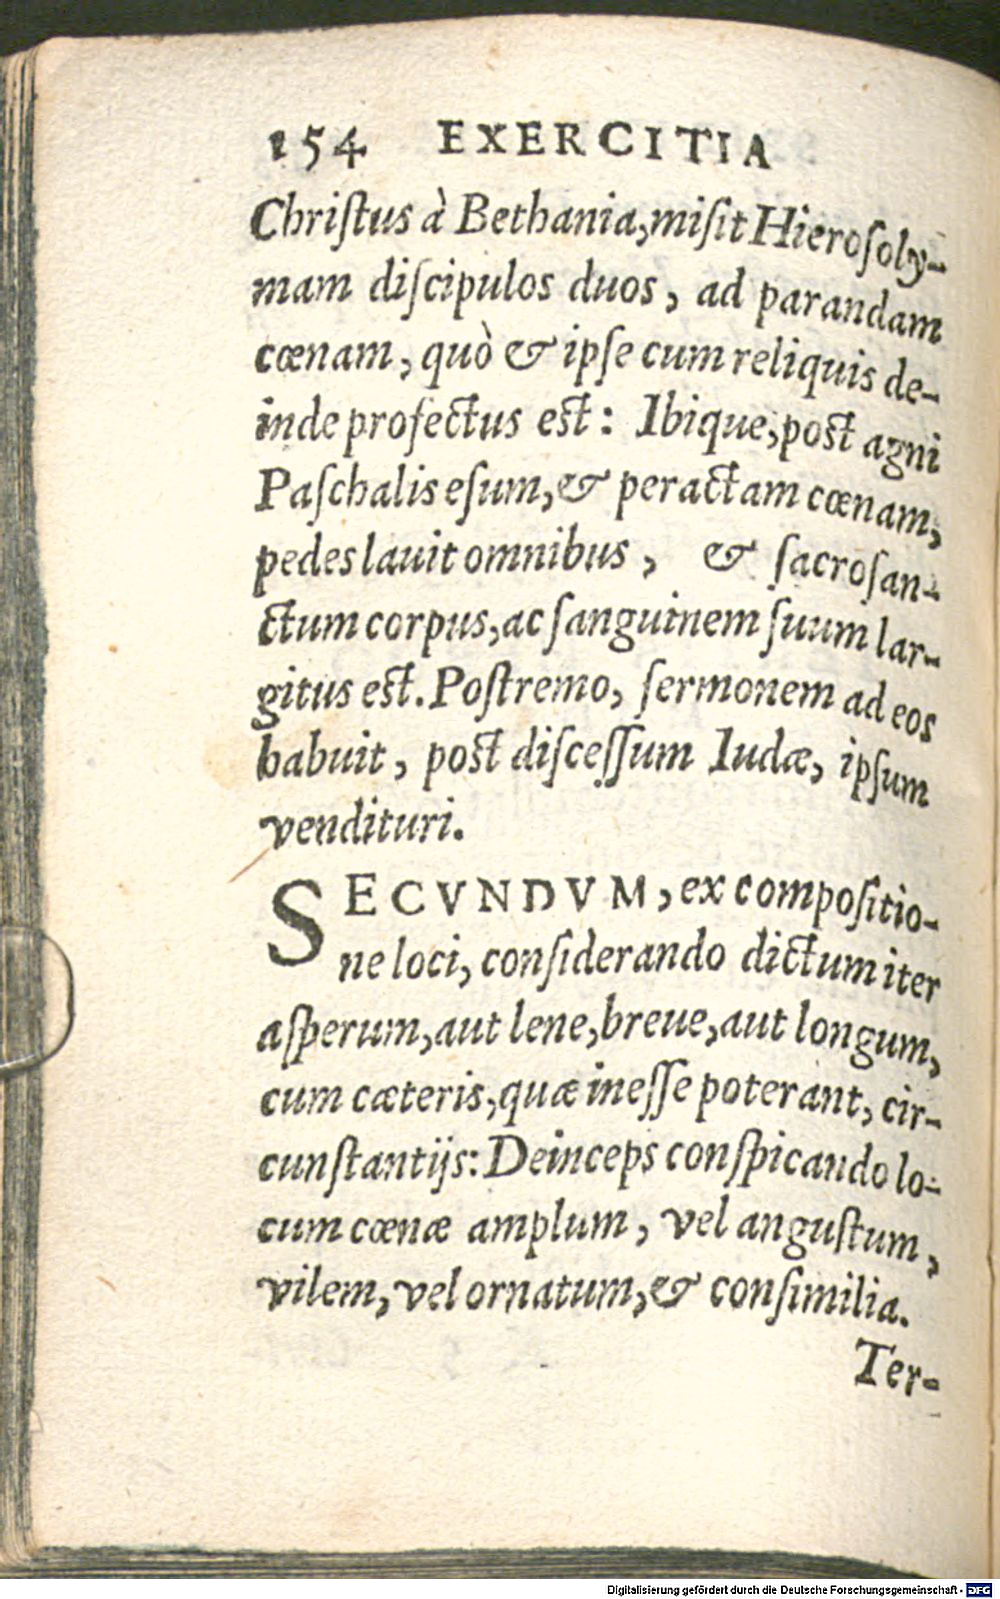 154 EXERCITIA
Chriſtus à Bethania, miſit Hieroſoly-
mam diſcipulos duos, ad parandam
cœnam, quò & ipſe cum reliquis de-
inde profectus eſt: Ibique, poſt agni
Paſchalis eſum, & peractam cœnam,
pedes lauit omnibus, & ſacroſan-
ctum corpus, ac ſanguinem ſuum lar-
gitus eſt. Poſtremo, ſermonem ad eos
habuit, poſt diſceſſum Iudæ, ipſum
vendituri.
SECVNDVM, ex compoſitio-
ne loci, conſiderando dictum iter
aſperum, aut lene, breue, aut longum,
cum cæteris, quæ ineſſe poterant, cir-
cunſtantijs: Deinceps conſpicando lo-
cum cœnæ amplum, vel anguſtum,
vilem, vel ornatum, & conſimilia.
Ter-
Digitalisierung gefördert durch die Deutsche Forschungsgemeinschaft - DFG